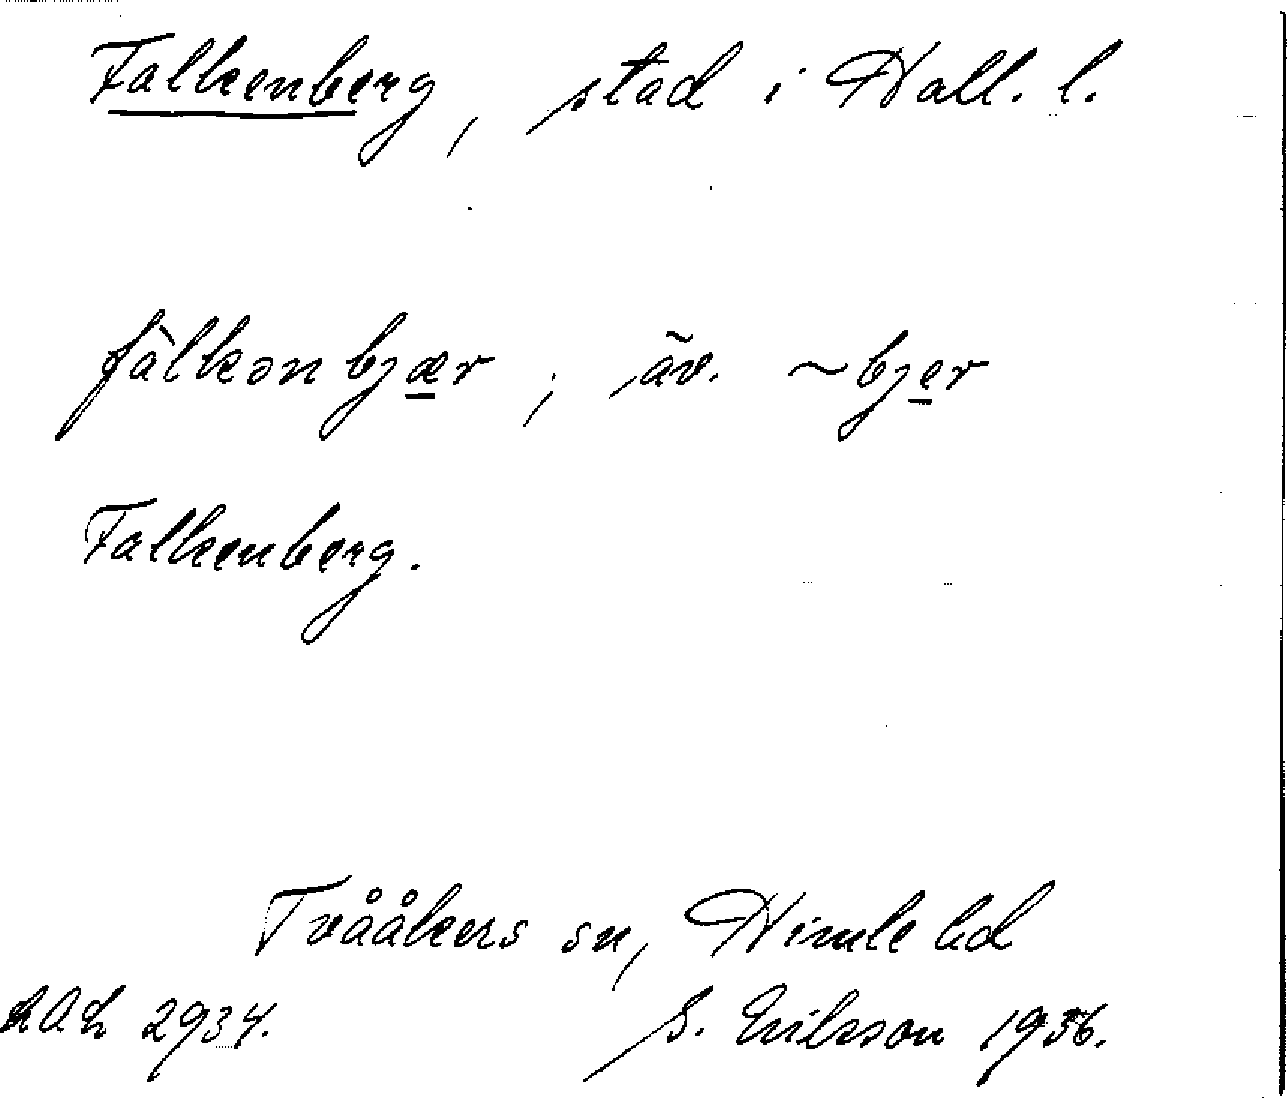 Falkenberg, stad i Hall. l.
fàlkənbjær, äv. ~bjer
Falkenberg.
Tvååkers sn, Himle hd
2934. S. Erikson 1936.